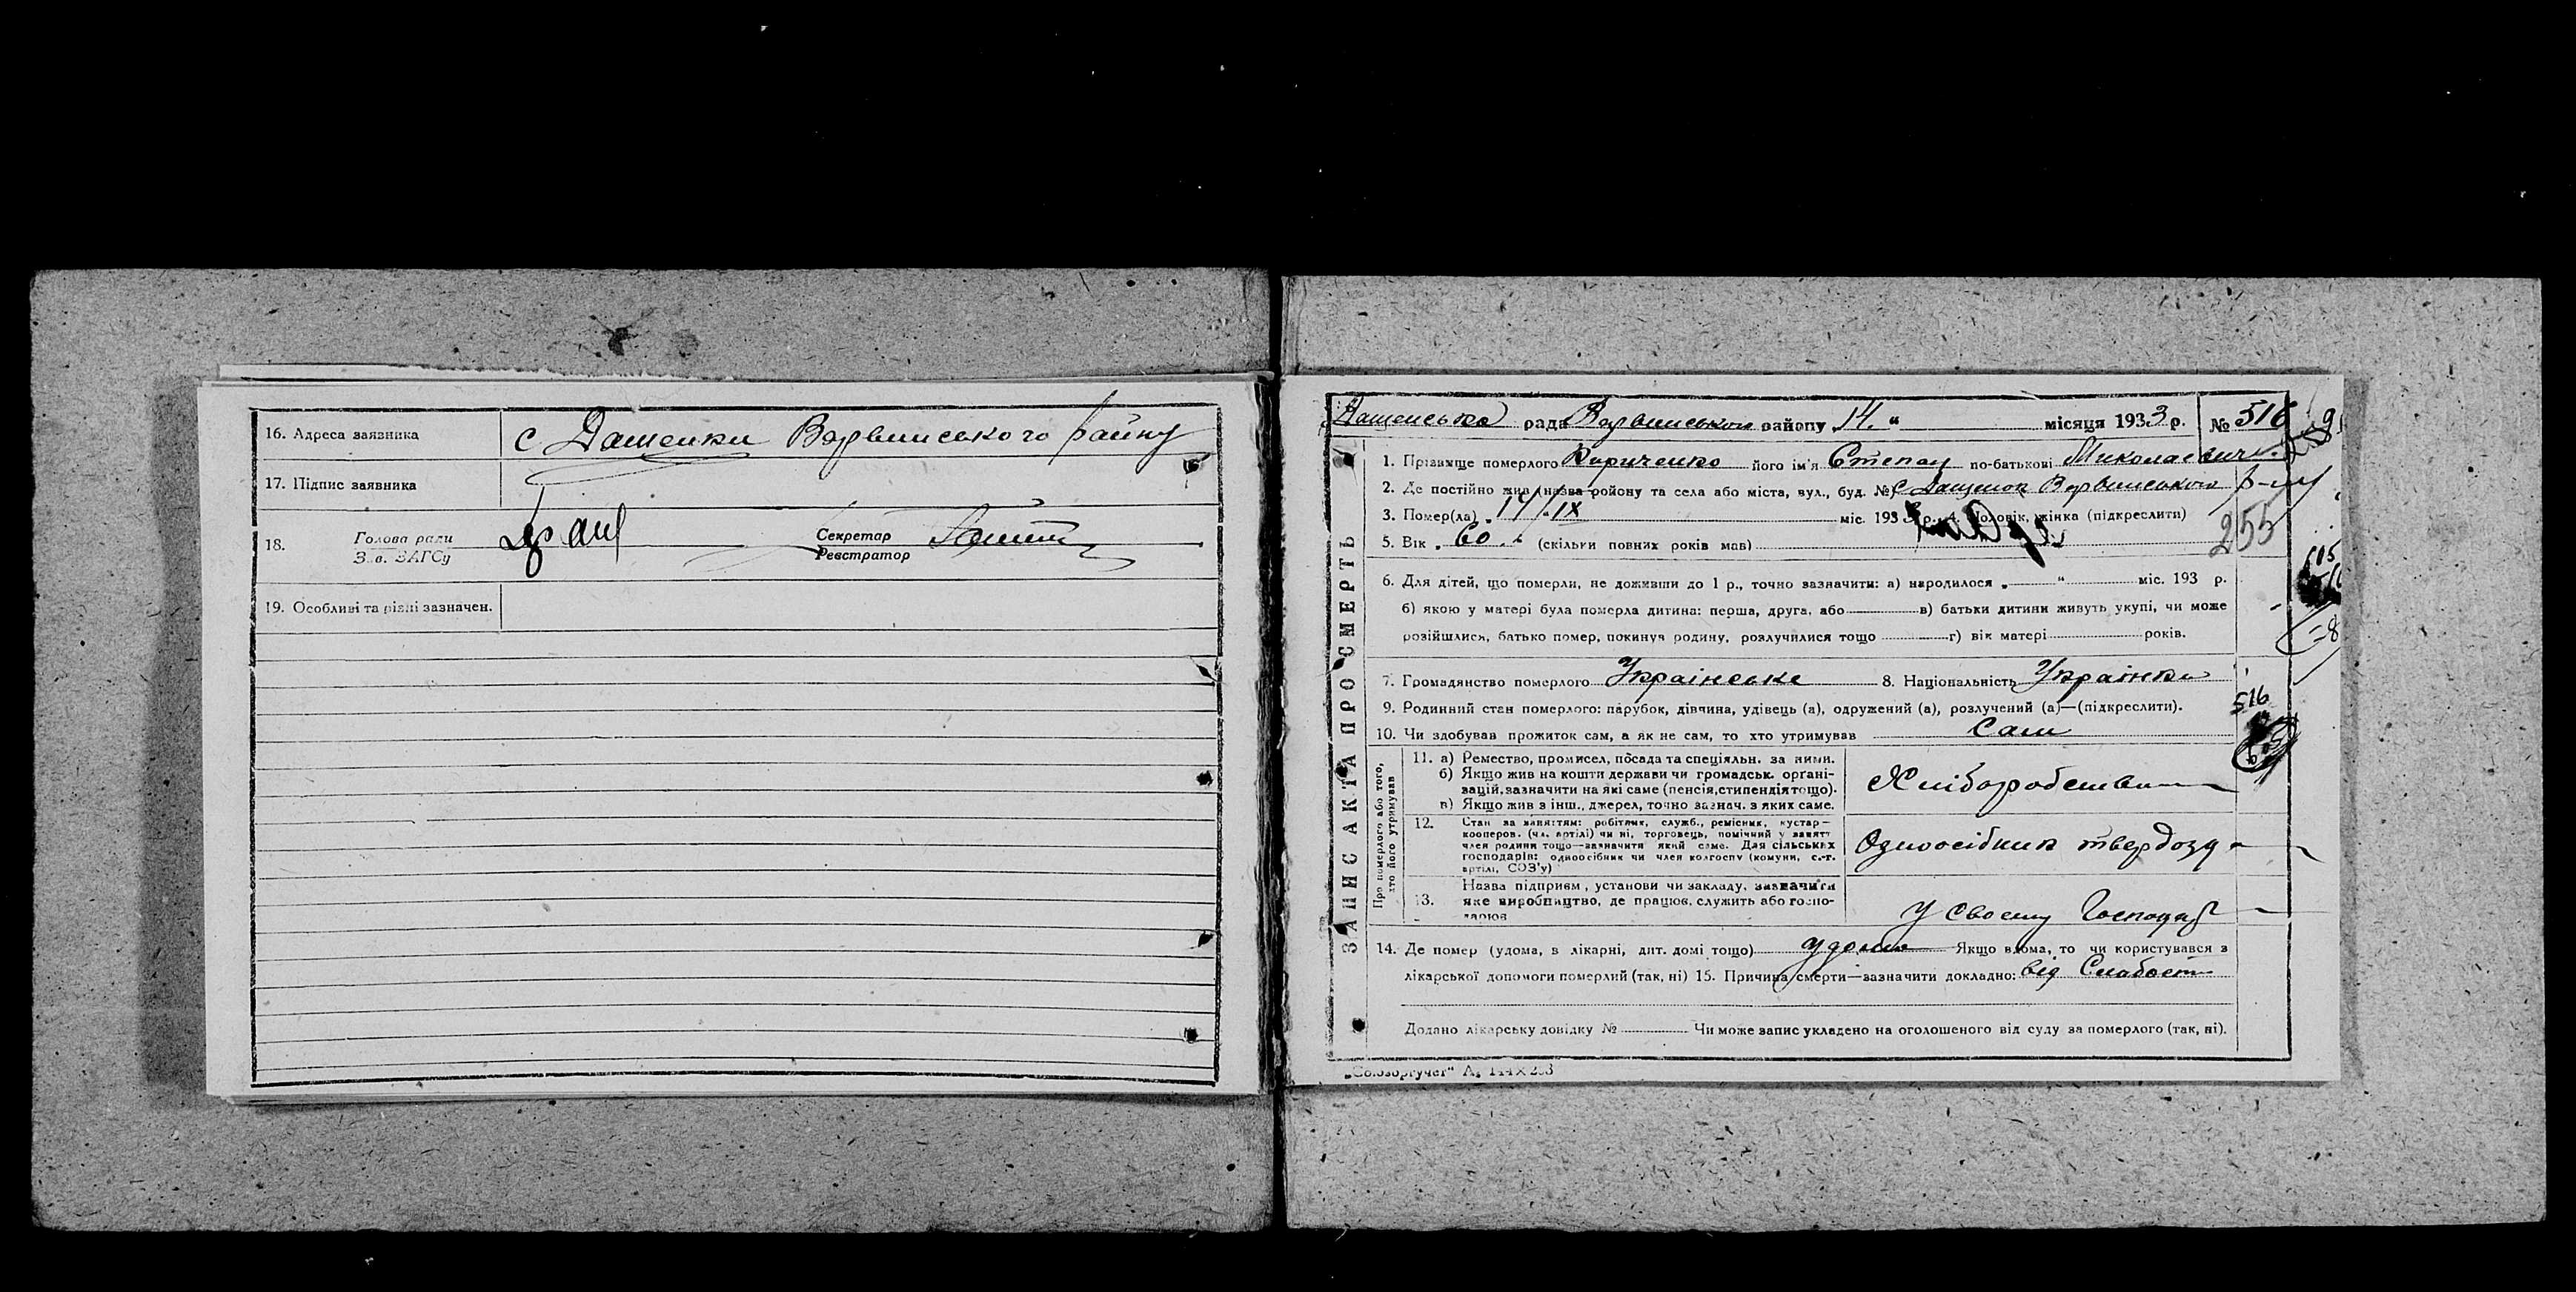 16. Адреса заявника с Дащенки Варвинського району
17. Підпис заявника
18. Голова ради Зав. ЗАГСу Секретар Реєстратор
19. Особливі та різні зазначен.
ЗАПИС АКТА ПРО СМЕРТЬ
Дащенська рада Варвинського району 14 " місяця 1933 р. № 516
1. Прізвище померлого Кириченко його ім'я Степан по-батькові Миколаєвич
2. Де постійно жив (назва району та села або міста, вул., буд. № с Дащенки Варвинського р-ну
3. Помер(ла) „ 14/IX міс. 1933 р. 4. Чоловік, жінка (підкреслити)
255
5. Вік „ 60 " (скільки повних років мав)
6. Для дітей, що померли, не доживши до 1 р., точно зазначити: а) народилося „ " міс. 193 р.
б) якою у матері була померла дитина: перша, друга, або в) батьки дитини живуть укупі, чи може
розійшлися, батько помер, покинув родину, розлучилися тощо г) вік матері років.
7. Громадянство померлого Українське 8. Національність Українка
9. Родинний стан померлого: парубок, дівчина, удівець (а), одружений (а), розлучений (а)—(підкреслити).
516
10. Чи здобував прожиток сам, а як не сам, то хто утримував Сам
Про померлого або того, хто його утримував
11. а) Ремество, промисел, посада та спеціяльн. за ними.
б) Якщо жив на кошти держави чи громадськ. органі-
зацій, зазначити на які саме (пенсія, стипендія тощо).
в) Якщо жив з інш., джерел, точно зазнач. з яких саме.
Хліборобство
12. Стан за заняттям: робітник, служб., ремісник, кустар—
кооперов. (чл. артілі) чи ні, торговець, помічний у занятт
член родини тощо—зазначити який саме. Для сільських
господарів: одноосібник чи член колгоспу (комуни, с.-г.
артілі, СОЗ'у)
Одноосібник твердозд
13. Назва підприєм., установи чи закладу, зазначити
яке виробництво, де працює, служить або госпо-
дарює
У своему господар
14. Де помер (удома, в лікарні, дит. домі тощо) удома Якщо вдома, то чи користувався з
лікарської допомоги померлий (так, ні) 15. Причина смерти—зазначити докладно: від Слабости
Додано лікарську довідку № Чи може запис укладено на оголошеного від суду за померлого (так, ні).
„Союзоргучет"